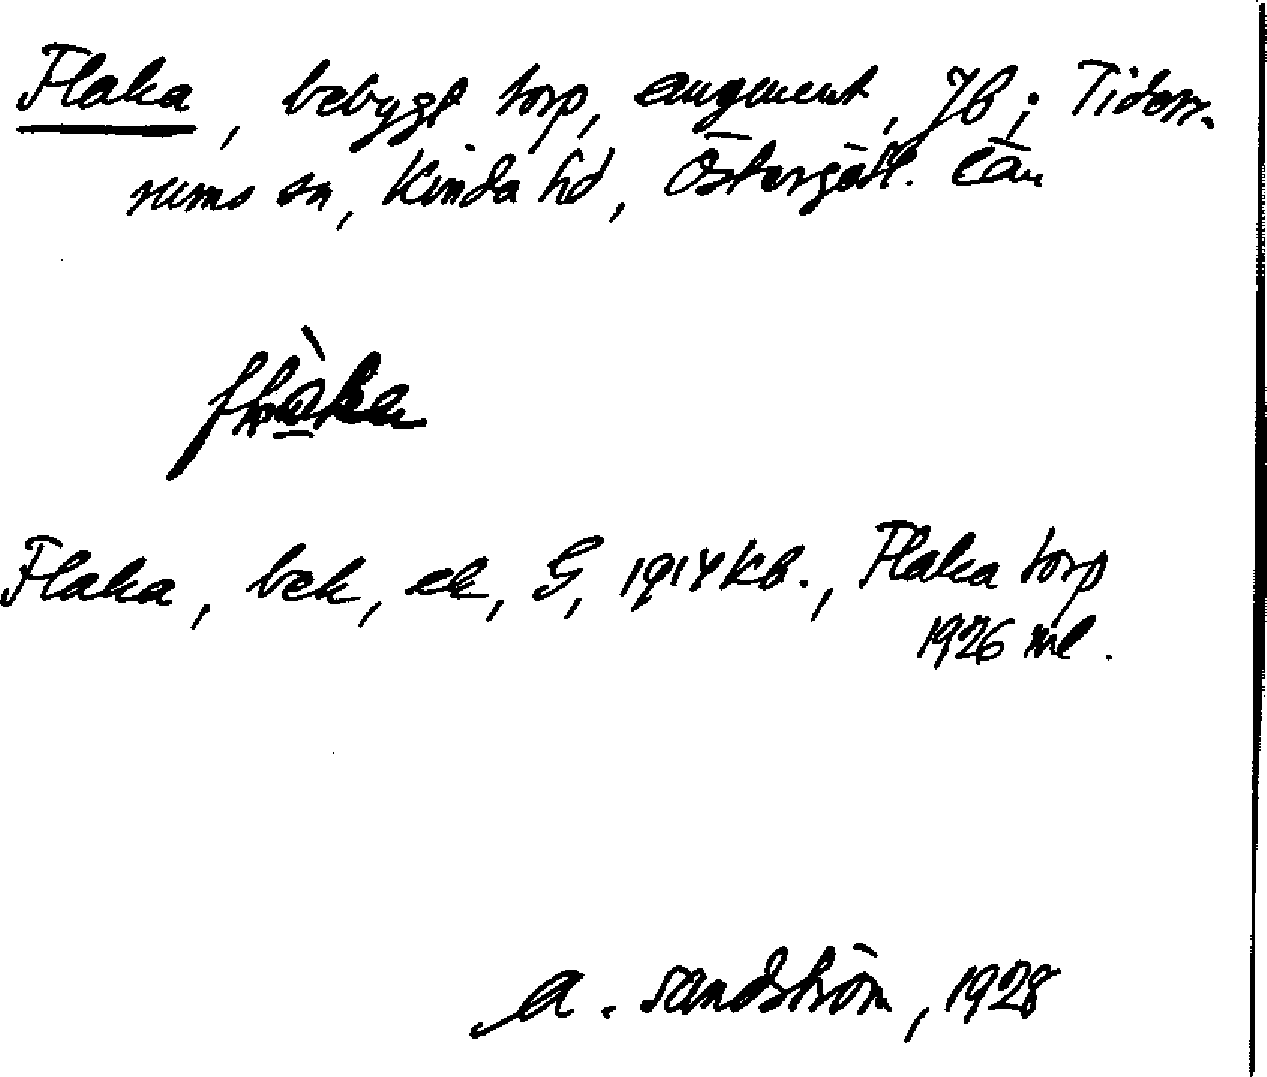 Flaka, bebyggt torp, augment, Jb; Tiders-
rums sn, Kinda hd, Östergötl. län
flàka
Flaka, bek, ek, G, 1914 Kb., Flaka torp
1926 ml.
A. Sandström, 1928